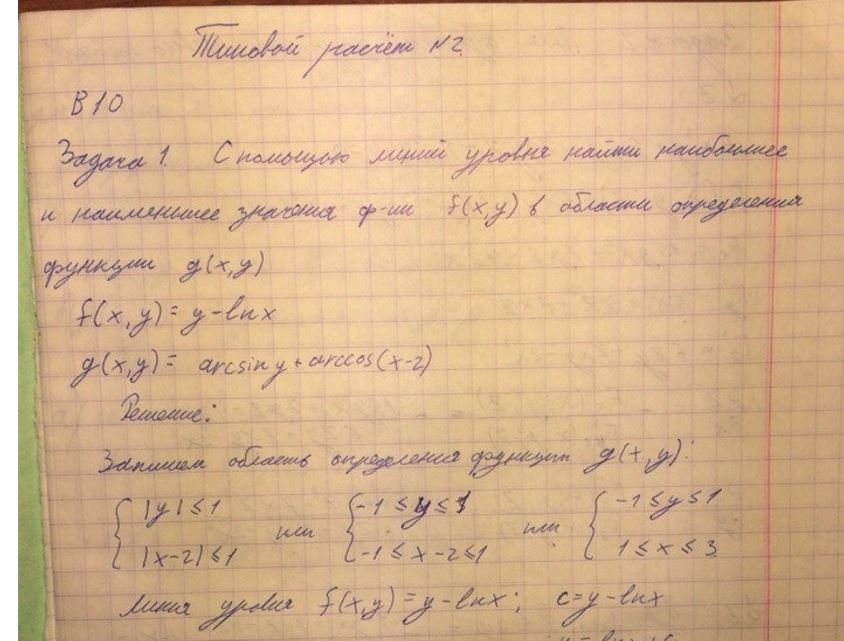 Типовой расчёт №2
В 10
Задача 1. С помощью линий уровня найти наибольшее
и наименьшее значения ф-ии f(x,y) в области определения
функции g(x,y)
f(x,y) = y - lnx
g(x,y) = arcsin y + arccos(x-2)
Решение:
Запишем область определения функции g(x,y):
{ |y| ≤ 1 или { -1 ≤ y ≤ 1 или { -1 ≤ y ≤ 1
|x-2| ≤ 1 -1 ≤ x-2 ≤ 1 1 ≤ x ≤ 3
Линия уровня f(x,y) = y - lnx; c = y - lnx